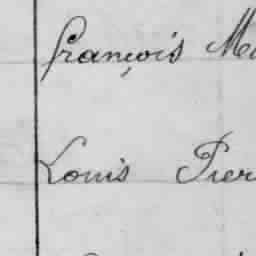 françois M
Louis Pier